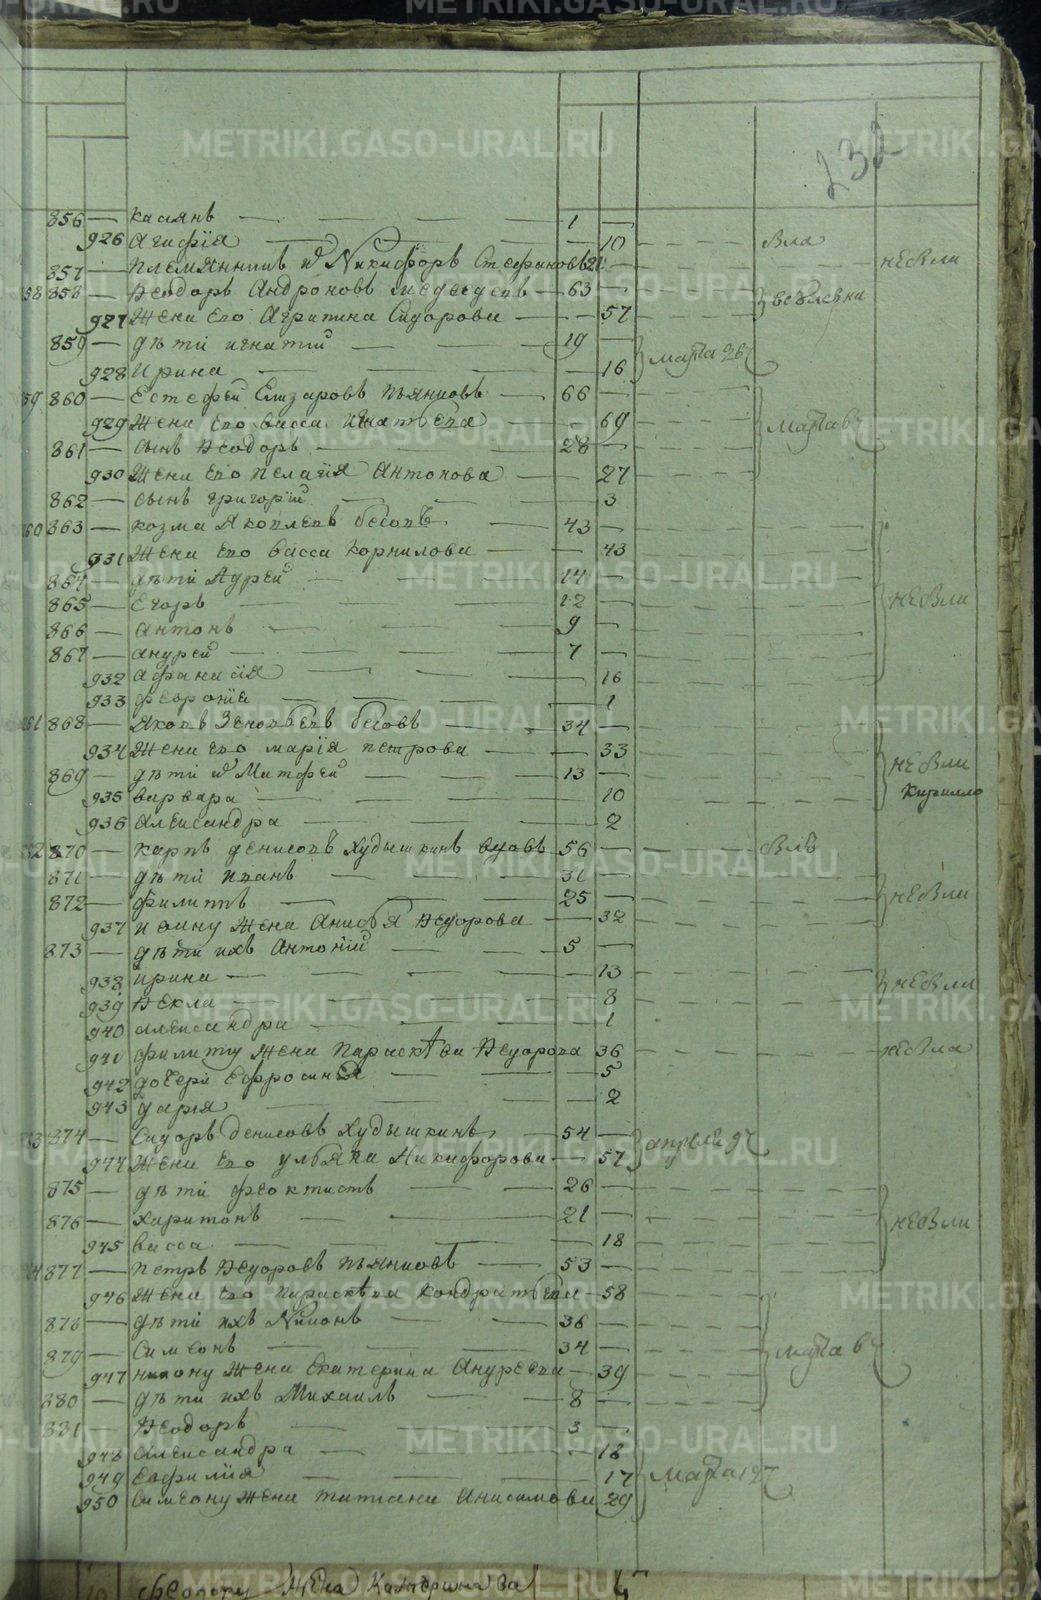 232
856 — Касиянъ — 1 —
926 Агафія — 10 вла
857 — Племянникъ Никифоръ Стефановъ 21 — небвли
858 — Ѳеодоръ Андроновъ Медведевъ — 63 —
927 Жена его Агрипина Сидорова — 57
859 — дѣти игнатий — 19 —
928 Ирина — 16 марта 26
59 860 — Естефей Елизаровъ Пьянковъ — 66 —
929 Жена его васса игнатьева — 69 марта 6
861 — сынъ Ѳеодоръ — 28 —
930 Жена его пелагія Антонова — 27
862 — сынъ григорій — 3
60 863 — козма Яковлевъ бѣсовъ — 43 —
931 Жена его васса Корнилова — 43
864 — дѣти Адрей — 14 —
865 — Егоръ — 12 — небвли
866 — антонъ — 9 —
867 — андрей — 7 —
932 афанасія — 16
933 феронія — 1
61 868 — Яковъ Зеновьевъ бесовъ — 34 —
934 Жена его марія петрова — 33
869 — дѣти Матфей — 13 — небвли
935 варвара — 10 Кирилло
936 александра — 2
62 870 — карпъ денисовъ Худышкинъ вдовъ 56 — влъ
871 — дѣти иванъ — 31 —
872 — филиппъ — 25 — небвли
937 ивану жена Анисья Ѳедорова — 32
873 — дѣти ихъ Антоній — 5 —
938 ирина — 13
939 Ѳекла — 8 небвли
940 александра — 1
941 филипу жена Параскѣва Ѳедорова 36 небвла
942 дочери Ефросинья — 5
943 дарья — 2
63 874 — Сидоръ денисовъ Худышкинъ — 54 —
944 Жена его ульяна Никифорова — 57 апреля 9
875 — дѣти феоктистъ — 26 —
876 — харитонъ — 21 — небвли
945 васса — 18
64 877 — петръ Ѳедоровъ Пьянковъ — 53 —
946 Жена его параскѣва Кондратьева — 58
878 — дѣти ихъ Никонъ — 36 —
879 — Симеонъ — 34 — марта 6
947 никону жена Екатерина Андреева — 39
880 — дѣти ихъ Михаилъ — 8 —
881 — Ѳеодоръ — 3 —
948 александра — 18
949 Евфилия — 17 марта 12
950 Симеону жена татиана анисимова 29
Феодору жена Катерина